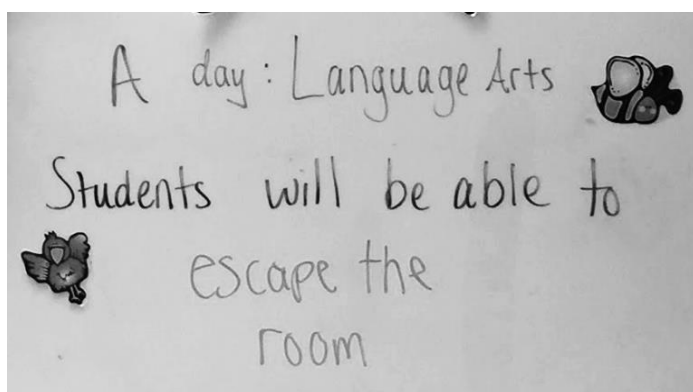 A day: Language Arts
Students will be able to
escape the
room